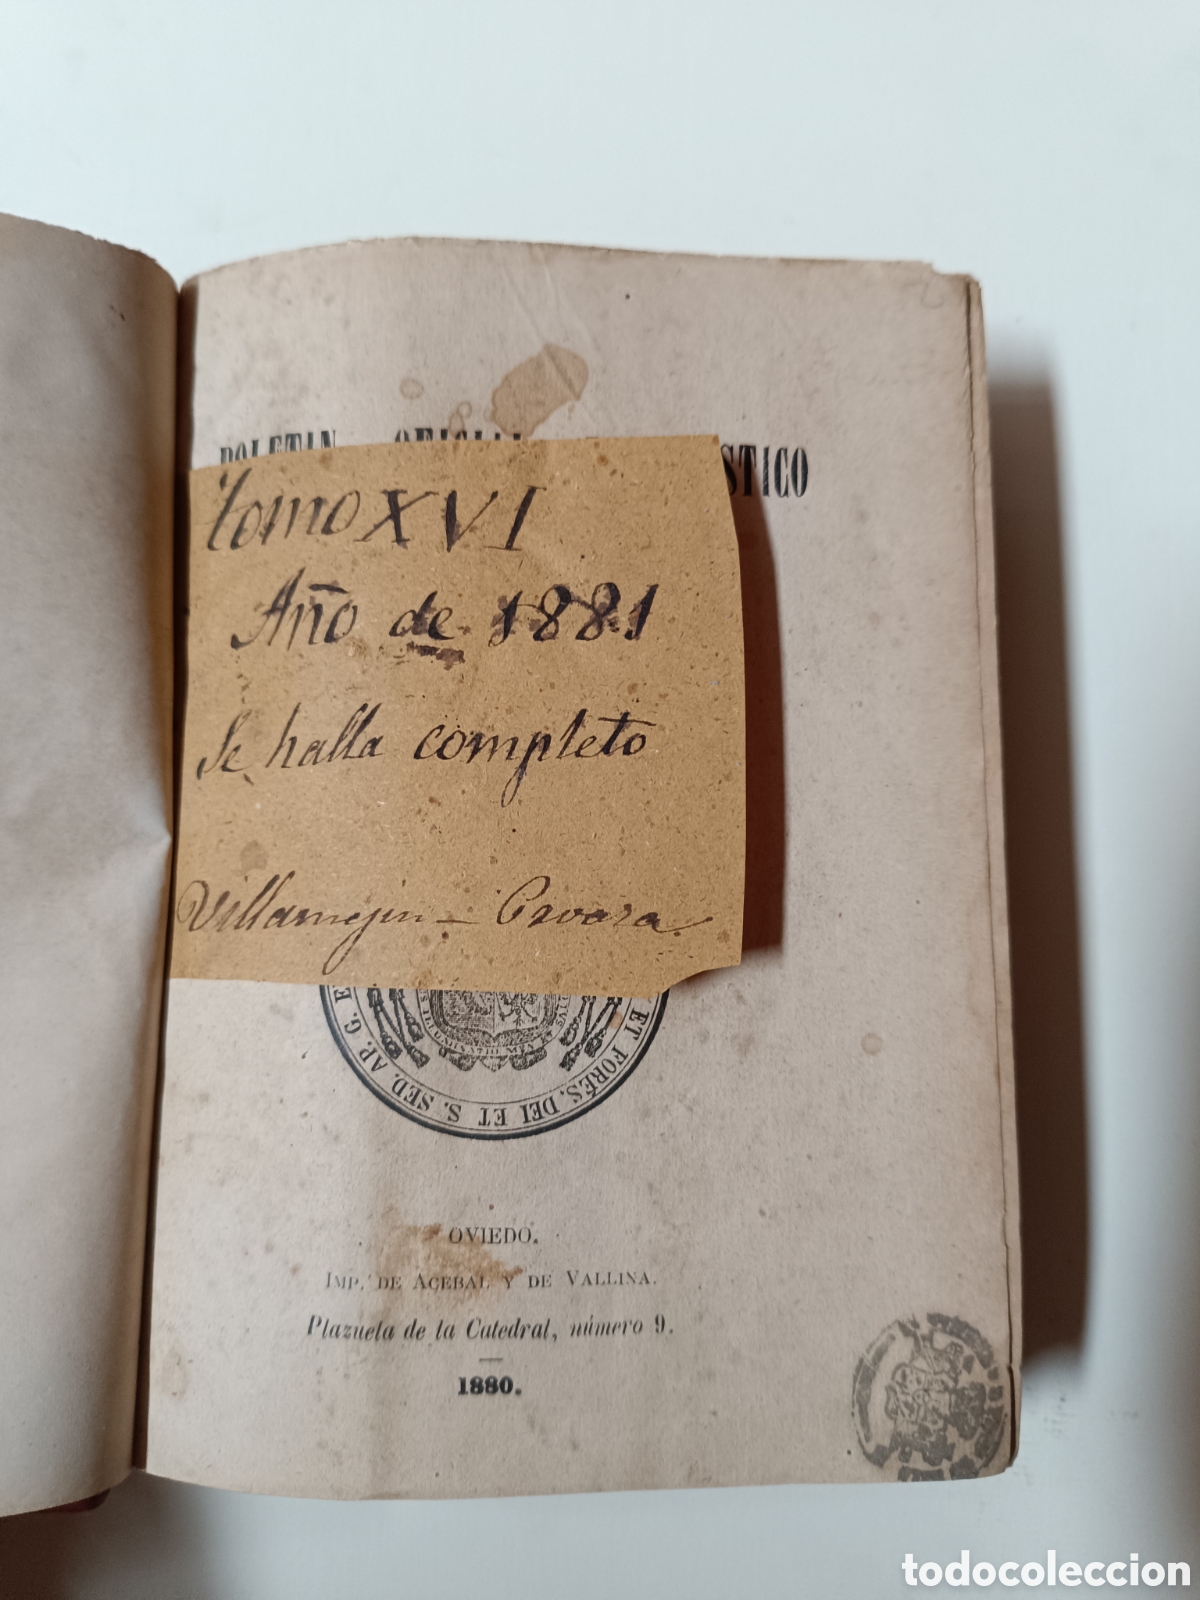 BOLETIN OFICIAL
STICO
Tomo XVI
Año de 1881
Se halla completo
Villamejin -
ET FORÉS. DEI ET S. SED. AP. G. E
OVIEDO.
IMP. DE ACEBAL Y DE VALLINA.
Plazuela de la Catedral, número 9.
1880.
todocoleccion